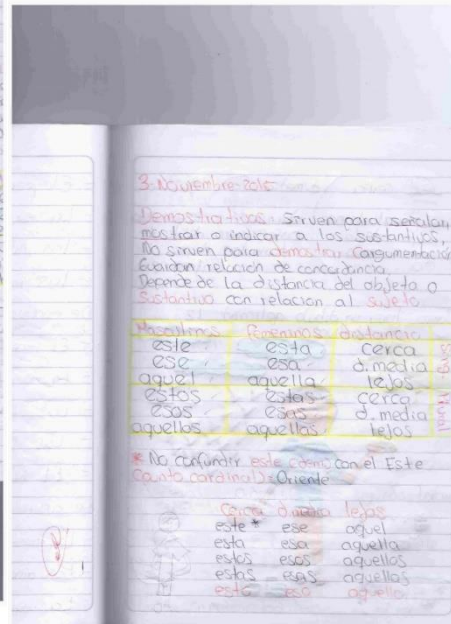 3-Noviembre-2015
Demostrativos: Sirven para señalar,
mostrar o indicar a los sustantivos,
No sirven para demostrar (argumentación
Guardan relación de concordancia
Depende de la distancia del objeto o
sustantivo con relación al sujeto
Masculinos Femeninos distancia
este esta cerca
ese esa d. media
aquel aquella lejos
estos estas cerca
esos esas d. media
aquellos aquellas lejos
Plural
* No confundir este dem. con el Este
(punto cardinal) = Oriente
Cerca d. media lejos
este * ese aquel
esta esa aquella
estos esos aquellos
estas esas aquellas
esto eso aquello